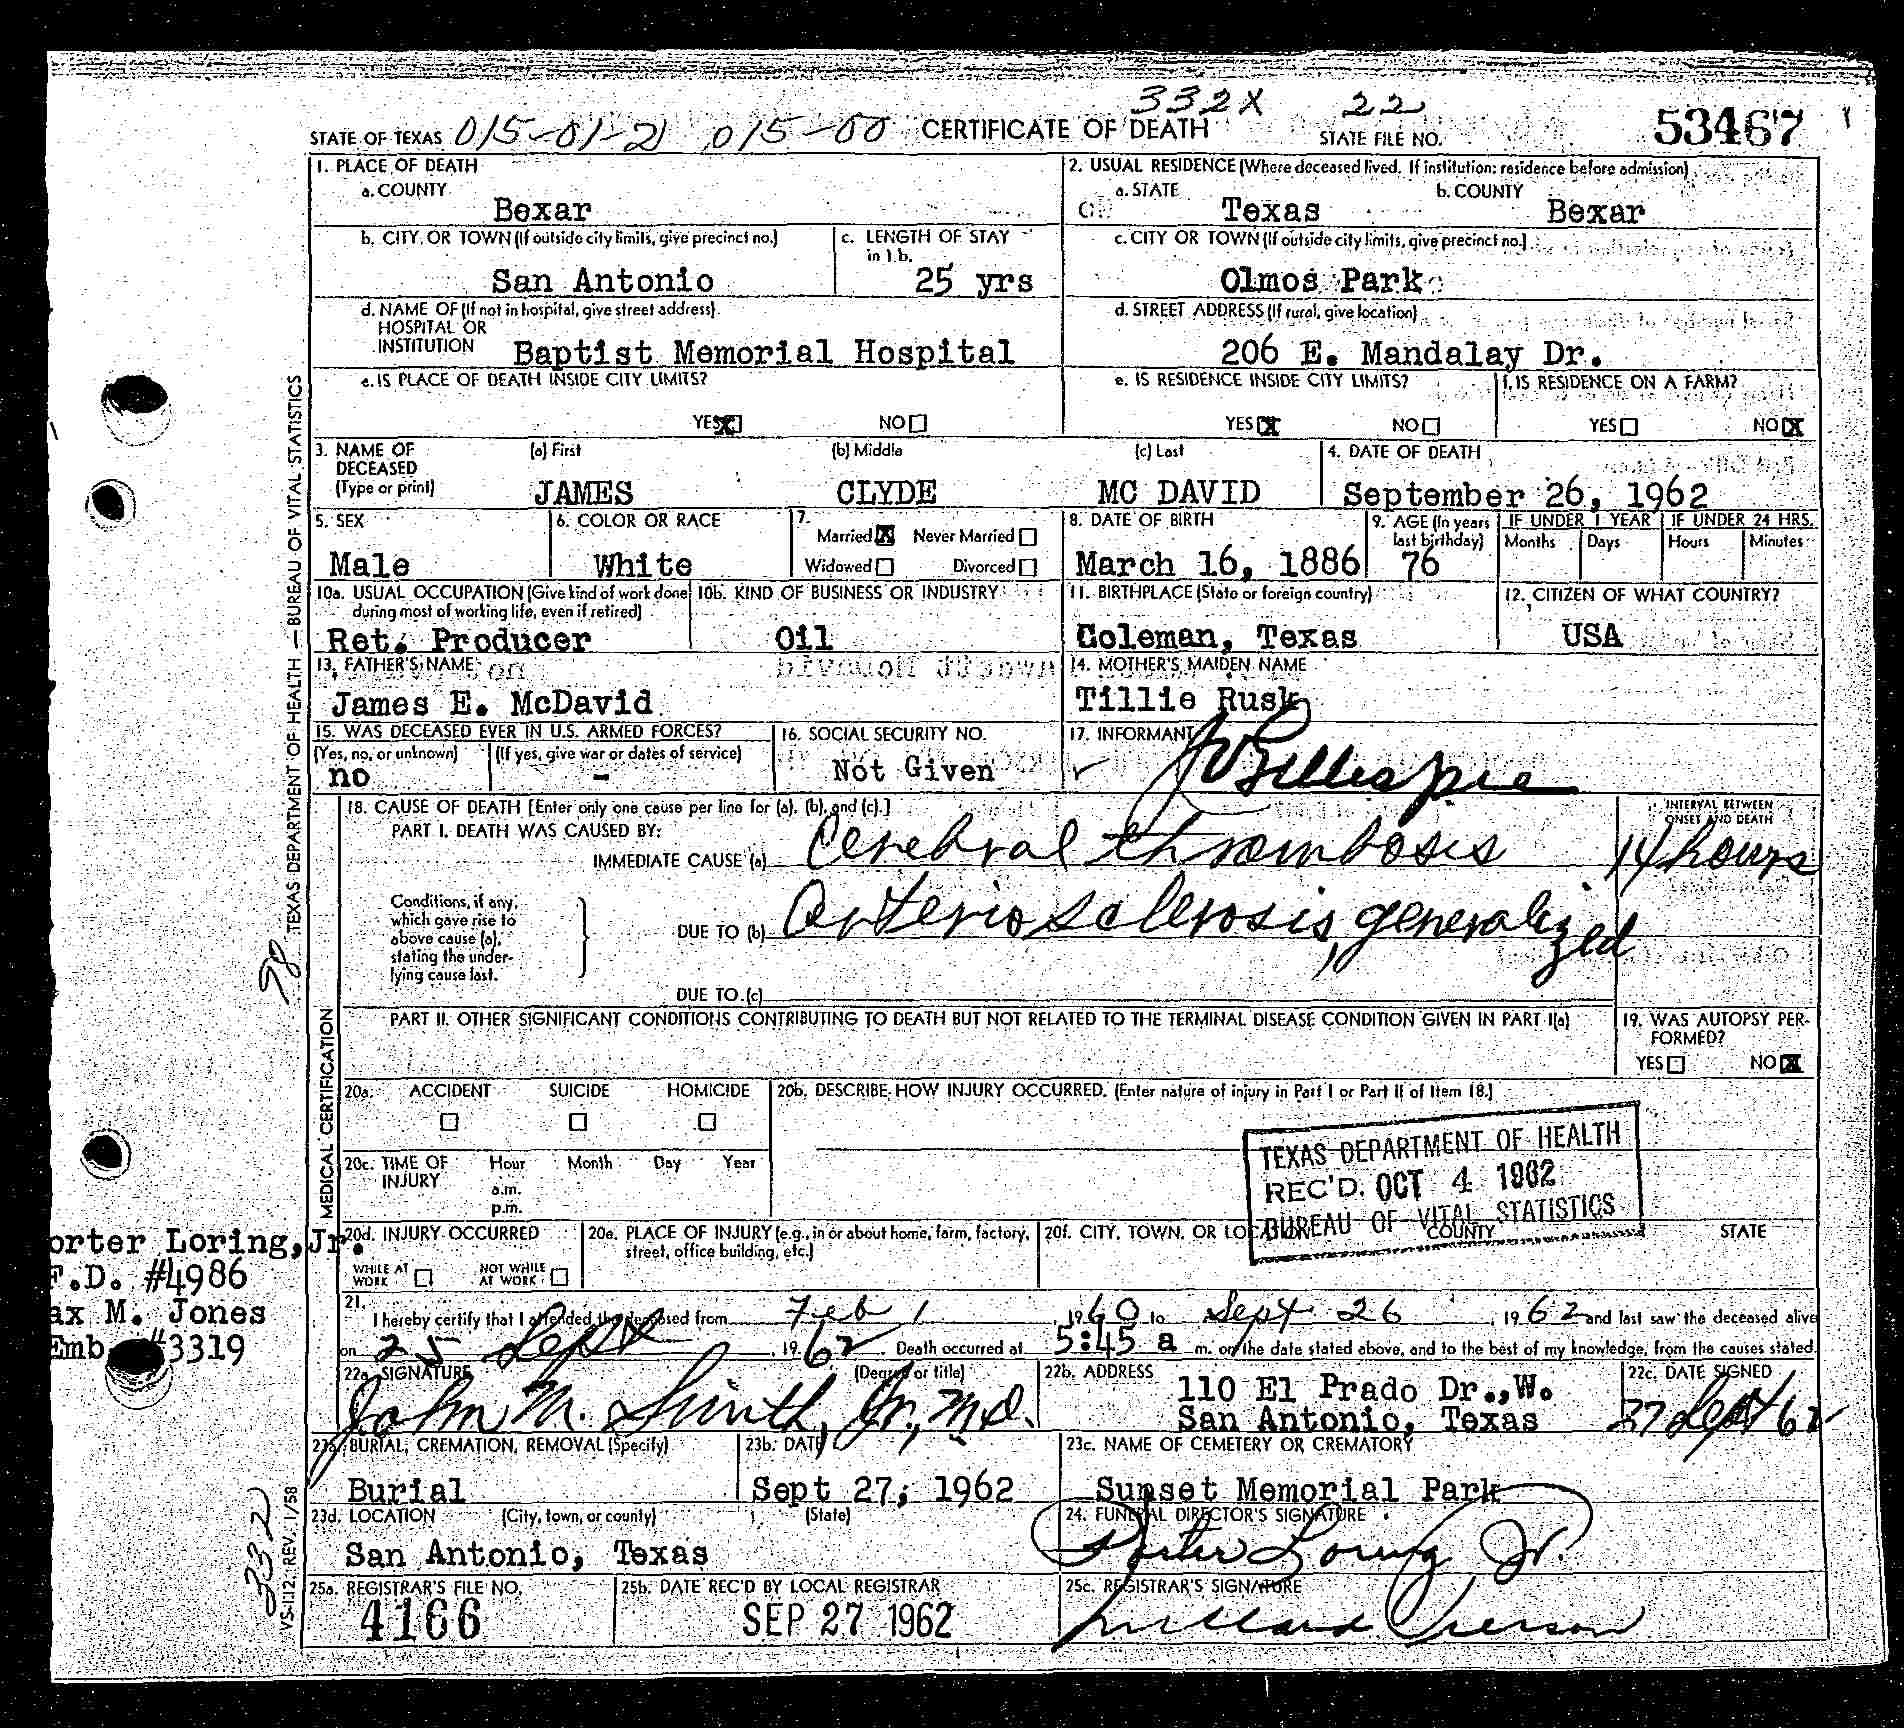 332X 22
STATE OF TEXAS 015-01-21 015-00 CERTIFICATE OF DEATH STATE FILE NO. 53467
1. PLACE OF DEATH
a. COUNTY
Bexar
2. USUAL RESIDENCE (Where deceased lived. If institution: residence before admission)
a. STATE b. COUNTY
Texas Bexar
b. CITY OR TOWN (If outside city limits, give precinct no.)
San Antonio
c. LENGTH OF STAY
in 1b.
25 yrs
c. CITY OR TOWN (If outside city limits, give precinct no.)
Olmos Park
d. NAME OF (If not in hospital, give street address)
HOSPITAL OR
INSTITUTION Baptist Memorial Hospital
d. STREET ADDRESS (If rural, give location)
206 E. Mandalay Dr.
e. IS PLACE OF DEATH INSIDE CITY LIMITS?
YES X NO
e. IS RESIDENCE INSIDE CITY LIMITS?
YES X NO
f. IS RESIDENCE ON A FARM?
YES NO X
3. NAME OF
DECEASED
(Type or print)
(a) First (b) Middle (c) Last
JAMES CLYDE MC DAVID
4. DATE OF DEATH
September 26, 1962
5. SEX
Male
6. COLOR OR RACE
White
7.
Married X Never Married
Widowed Divorced
8. DATE OF BIRTH
March 16, 1886
9. AGE (In years
last birthday)
76
IF UNDER 1 YEAR IF UNDER 24 HRS.
Months Days Hours Minutes
10a. USUAL OCCUPATION (Give kind of work done
during most of working life, even if retired)
Ret. Producer
10b. KIND OF BUSINESS OR INDUSTRY
Oil
11. BIRTHPLACE (State or foreign country)
Coleman, Texas
12. CITIZEN OF WHAT COUNTRY?
USA
13. FATHER'S NAME
James E. McDavid
14. MOTHER'S MAIDEN NAME
Tillie Rusk
15. WAS DECEASED EVER IN U.S. ARMED FORCES?
(Yes, no, or unknown) (If yes, give war or dates of service)
no -
16. SOCIAL SECURITY NO.
Not Given
17. INFORMANT
Gillespie
18. CAUSE OF DEATH [Enter only one cause per line for (a), (b), and (c).]
PART I. DEATH WAS CAUSED BY:
IMMEDIATE CAUSE (a) Cerebral thrombosis
INTERVAL BETWEEN
ONSET AND DEATH
14 hours
Conditions, if any,
which gave rise to
above cause (a),
stating the under-
lying cause last.
DUE TO (b) Arteriosclerosis, generalized
DUE TO (c)
PART II. OTHER SIGNIFICANT CONDITIONS CONTRIBUTING TO DEATH BUT NOT RELATED TO THE TERMINAL DISEASE CONDITION GIVEN IN PART I(a)
19. WAS AUTOPSY PER-
FORMED?
YES NO X
20a. ACCIDENT SUICIDE HOMICIDE
20b. DESCRIBE HOW INJURY OCCURRED. (Enter nature of injury in Part I or Part II of Item 18.)
20c. TIME OF
INJURY
Hour Month Day Year
a.m.
p.m.
TEXAS DEPARTMENT OF HEALTH
REC'D. OCT 4 1962
BUREAU OF VITAL STATISTICS
20d. INJURY OCCURRED
WHILE AT
WORK
NOT WHILE
AT WORK
20e. PLACE OF INJURY (e.g., in or about home, farm, factory,
street, office building, etc.)
20f. CITY, TOWN, OR LOCATION COUNTY STATE
orter Loring, Jr.
F.D. #4986
ax M. Jones
Emb #3319
21.
I hereby certify that I attended the deceased from Feb 1 1960 to Sept 26, 1962 and last saw the deceased alive
on 25 Sept, 1962. Death occurred at 5:45 a m. on the date stated above, and to the best of my knowledge, from the causes stated.
22a. SIGNATURE (Degree or title)
John M. Smith, Jr., M.D.
22b. ADDRESS
110 El Prado Dr.,W.
San Antonio, Texas
22c. DATE SIGNED
27 Sept 62
23a. BURIAL, CREMATION, REMOVAL (Specify)
Burial
23b. DATE
Sept 27, 1962
23c. NAME OF CEMETERY OR CREMATORY
Sunset Memorial Park
23d. LOCATION (City, town, or county) (State)
San Antonio, Texas
24. FUNERAL DIRECTOR'S SIGNATURE
Porter Loring Jr.
25a. REGISTRAR'S FILE NO.
4166
25b. DATE REC'D BY LOCAL REGISTRAR
SEP 27 1962
25c. REGISTRAR'S SIGNATURE
TEXAS DEPARTMENT OF HEALTH — BUREAU OF VITAL STATISTICS
98
MEDICAL CERTIFICATION
332
VS-112, REV. 1/58